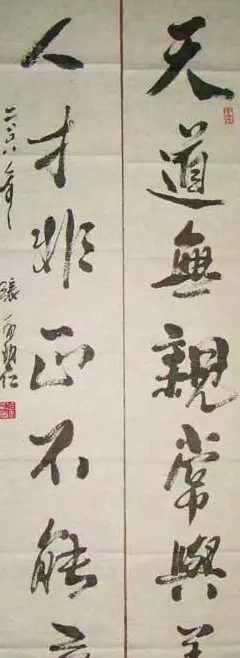 天道無親常與
人才非正不能
二〇〇八年 張